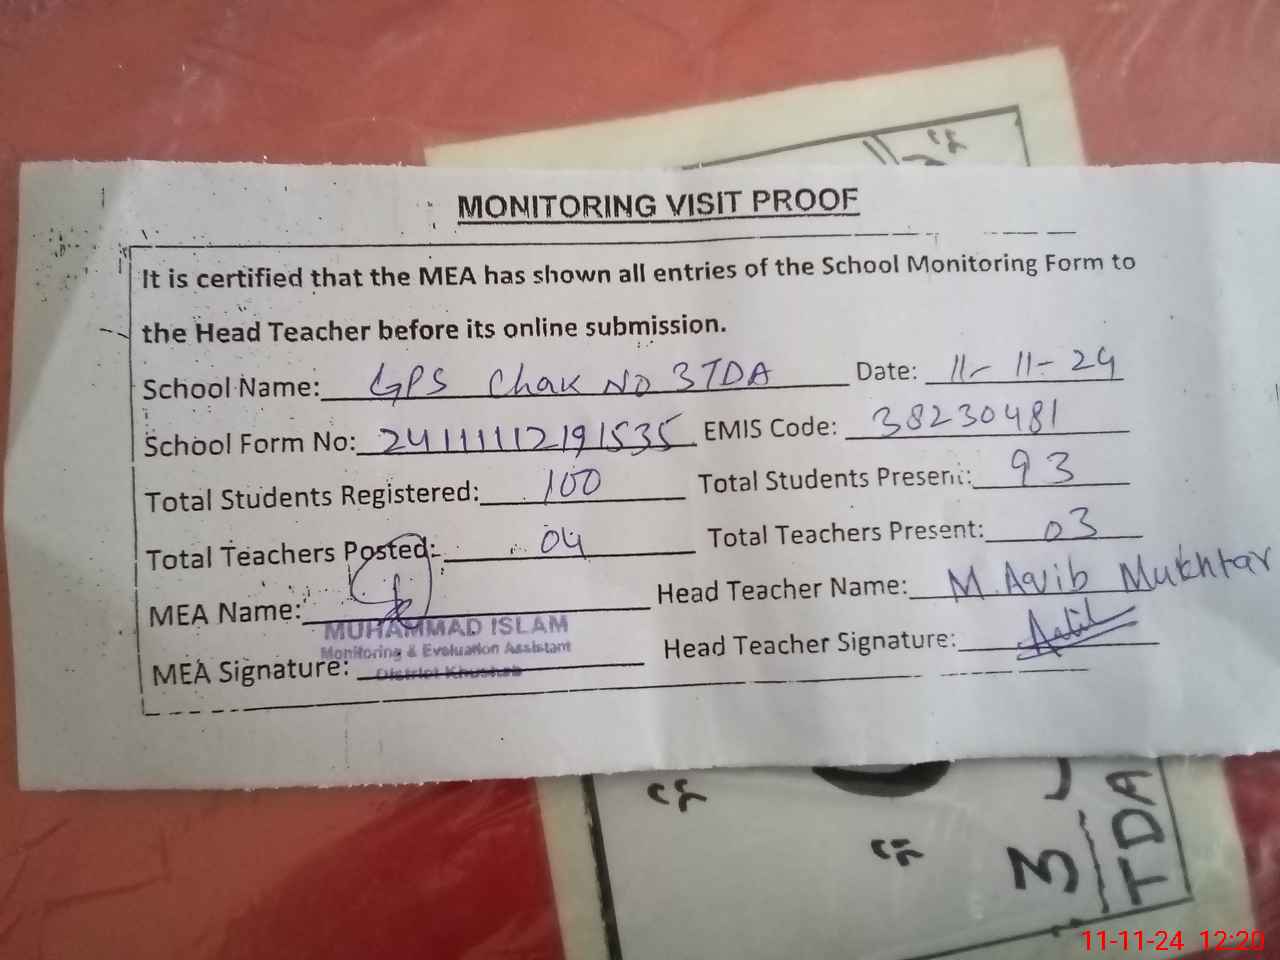 MONITORING VISIT PROOF
It is certified that the MEA has shown all entries of the School Monitoring Form to
the Head Teacher before its online submission.
School Name: GPS Chak No 3TDA Date: 11-11-24
School Form No: 24111112191535 EMIS Code: 38230481
Total Students Registered: 100 Total Students Present: 93
Total Teachers Posted: 04 Total Teachers Present: 03
MEA Name: Head Teacher Name: M. Mukhtar
MUHAMMAD ISLAM
Monitoring & Evaluation Assistant
District Khushab
MEA Signature: Head Teacher Signature:
3
TDA
11-11-24 12:20